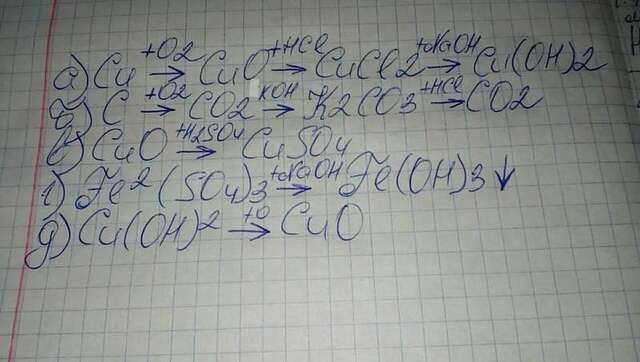 а) Cu +O2→ CuO +HCl→ CuCl2 +NaOH→ Cu(OH)2
б) C +O2→ CO2 KOH→ K2CO3 +HCl→ CO2
в) CuO +H2SO4→ CuSO4
г) Fe2(SO4)3 +NaOH→ Fe(OH)3↓
д) Cu(OH)2 +O→ CuO